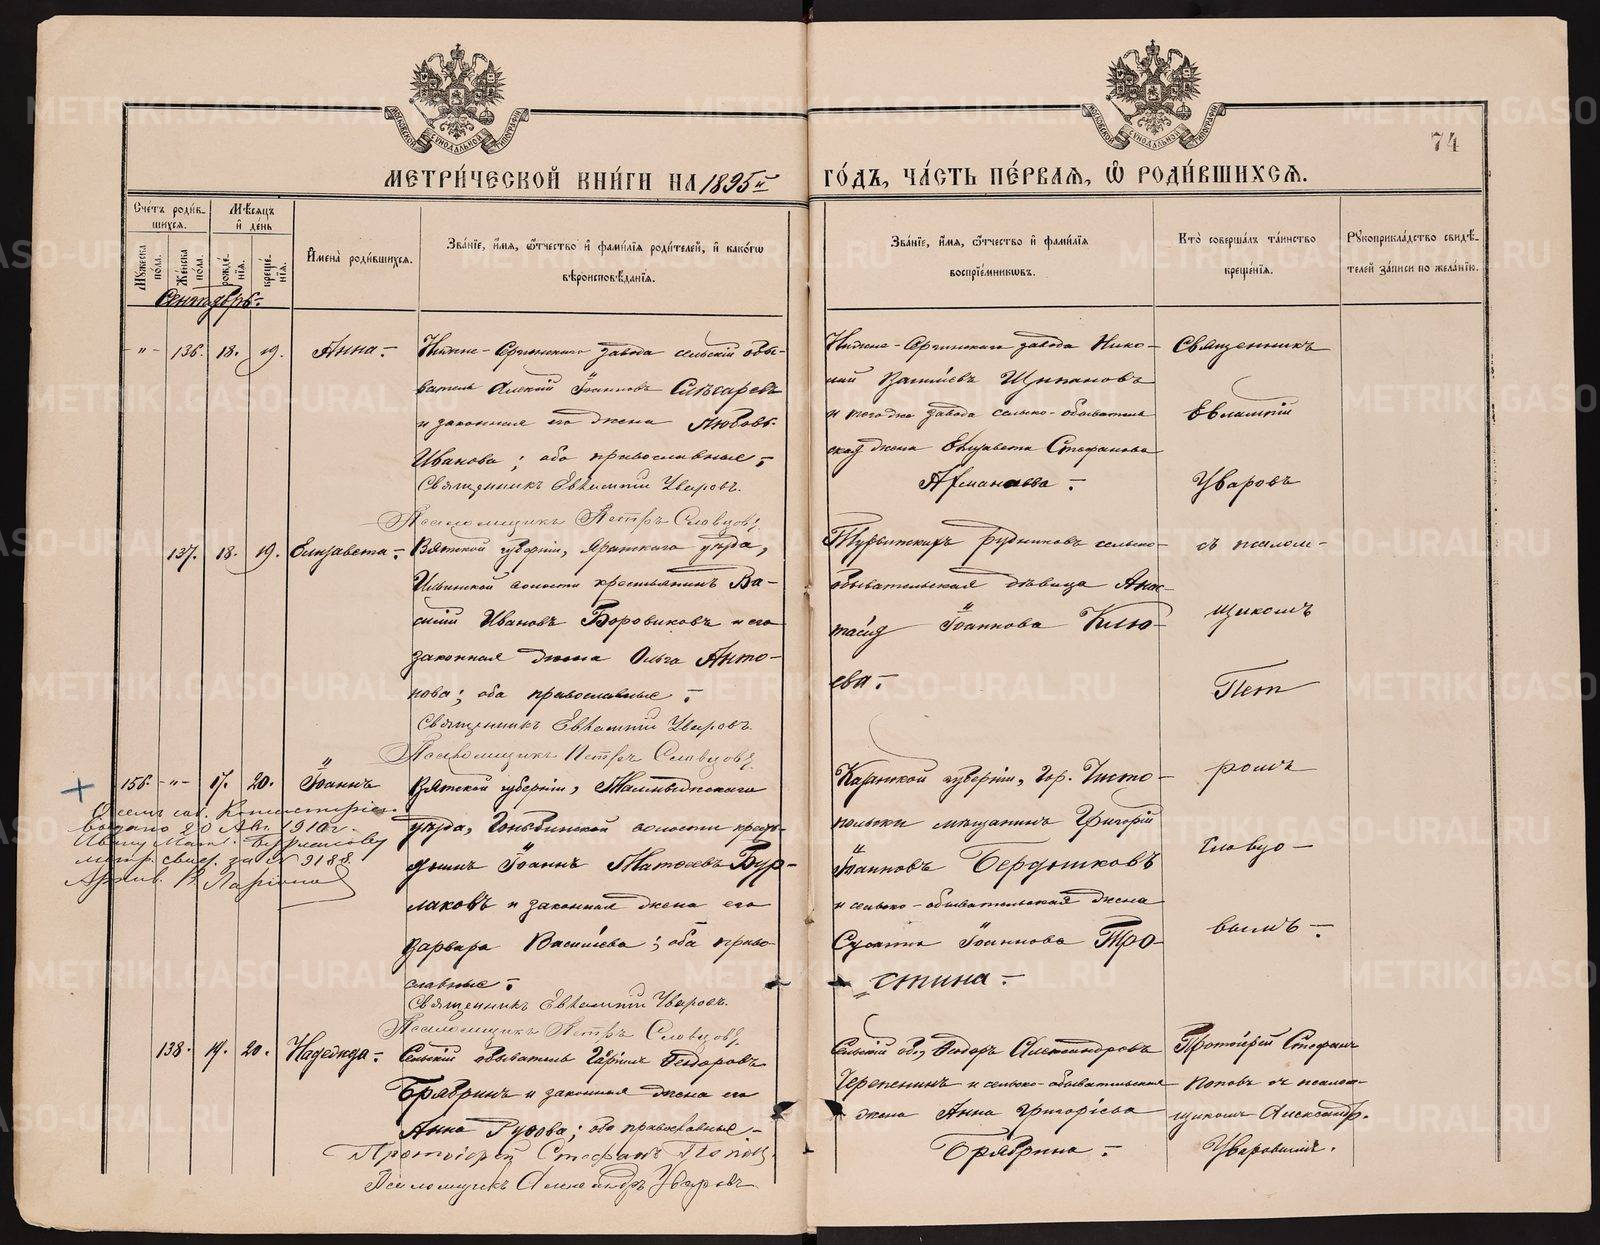 МЕТРИ́ЧЕСКОЙ КНИ́ГИ НА 1895й ГО́ДЪ, ЧА́СТЬ ПЕ́РВАЯ, Ѡ РОДИ́ВШИХСЯ.
74
Сче́тъ роди́в-
шихся.
Мѣ́сяцъ
и́ де́нь
Му́жеска
пола.
Же́нска
пола.
рожде́-
нїя.
креще́-
нїя.
И́мена̀ роди́вшихся.
Зва́нїе, и́мя, ѻ́тчество и́ фами́лїя роди́телей, и́ како́гѡ
вѣроисповѣ́данїя.
Зва́нїе, и́мя, ѻ́тчество и́ фами́лїя
воспрїе́мникѡвъ.
Кто̀ соверша́лъ та́инство
креще́нїя.
Рꙋкоприкла́дство свидѣ́-
телей за́писи по жела́нїю.
Сентябрь.
-"- 136. 18. 19. Анна.-
Нижне-Сергинскаго завода сельскій обы-
ватель Алексій Іоанновъ Слѣсаревъ
и законная его жена Любовь
Иванова; оба православные.-
Священникъ Евлампій Уваровъ.
Псаломщикъ Петръ Словцовъ.
Нижне-Сергинскаго завода Нико-
лай Васильевъ Щипановъ
и того же завода сельско-обыватель
ская жена Елизавета Стефанова
.-
Священникъ
Евлампій
Уваровъ
137. 18. 19. Елизавета.-
Вятской губерніи, Яранскаго уѣзда,
Ильинской волости крестьянинъ Ва-
силій Ивановъ Боровиковъ и его
законная жена Ольга Анто-
нова; оба православные.-
Священникъ Евлампій Уваровъ.
Псаломщикъ Петръ Словцовъ.
рудниковъ сельско-
обывательская дѣвица Анас-
тасія Іоаннова Клю-
ева.-
съ псалом-
щикомъ
Пет
ромъ
Словцо-
вымъ.-
156. -"- 17. 20. Іоаннъ
Вятской губерніи, Малмыжскаго
уѣзда, Гоньбинской волости кресть-
янинъ Іоаннъ Матѳеевъ Бур-
лаковъ и законная жена его
Варвара Васильева; оба право-
славные.-
Священникъ Евлампій Уваровъ.
Псаломщикъ Петръ Словцовъ.
Казанской губерніи, гор. Чисто-
польскій мѣщанинъ Григорій
Іоанновъ Бердышковъ
и сельско-обывательская жена
Сусанна Іоаннова Тро-
стина.-
консисторіею
выдано 20 Авг. 1910г.
Ивану Матв. Бурлакову
метр. свид. за № 9188.
Архив. В Ларіонов
138. 19. 20. Надежда.-
Сельскій обыватель Гавріилъ Ѳеодоровъ
Брябринъ и законная жена его
Анна Руфова; оба православные.-
Протоіерей Стефанъ Поповъ.
Псаломщикъ Александръ Уваровъ
Сельскій обыв. Ѳеодоръ Александровъ
Черепенинъ и сельско-обывательская
жена Анна Григорьева
Брябрина.-
Протоіерей Стефанъ
Поповъ съ псалом-
щикомъ Александр.
Уваровымъ.
METRIKI.GASO-URAL.RU